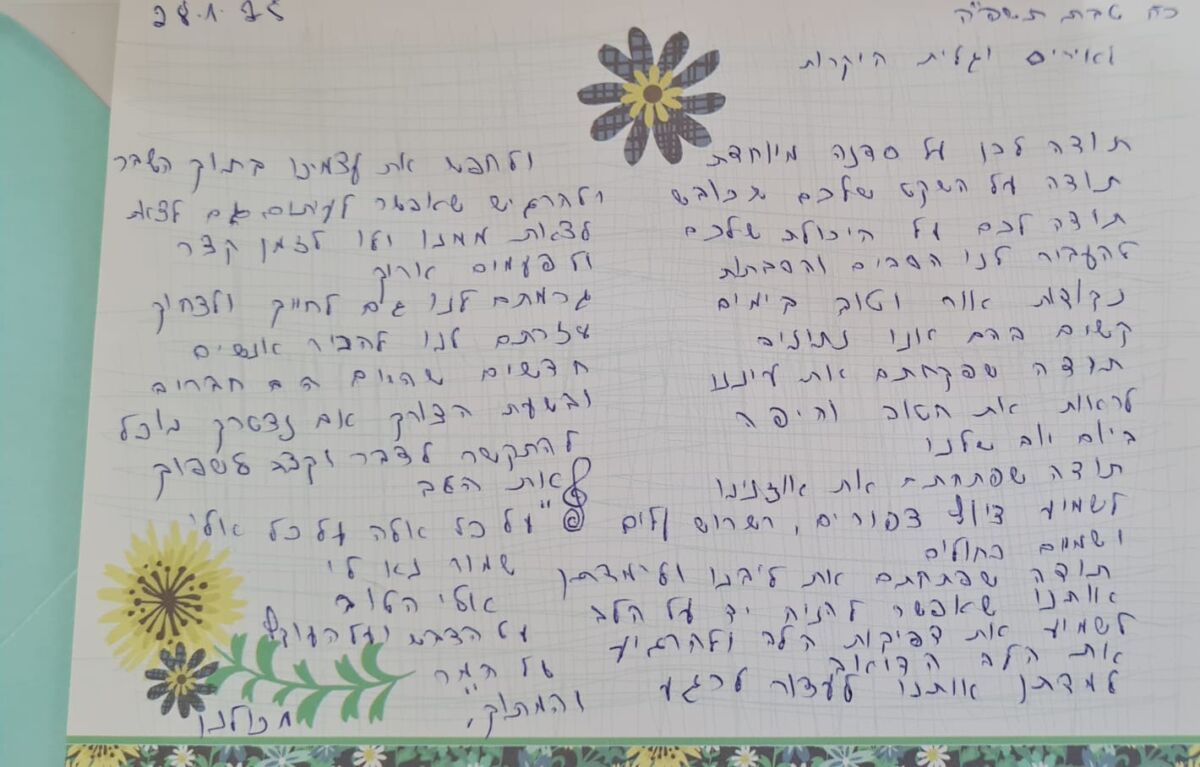 כח טבת תשפ"ה
28.1.25
לאיריס וגלית היקרות
תודה לכן על סדנה מיוחדת
תודה על השקט שלכם שכובש
תודה לכם על היכולת שלכם
להעביר לנו הסבים והסבתות
נקודות אור וטוב בימים
קשים בהם אנו נתונים
תודה שפקחתם את עיננו
לראות את הטוב והיפה
ביום יום שלנו
תודה שפתחתם את אוזנינו
לשמיע ציוץ צפורים, רשרוש עלים
ושמיים כחולים
תודה שפתחתם את ליבנו ולימדתן
אותנו שאפשר להניח יד על הלב
לשמיע את דפיקות הלב ולהרגיע
את הלב הדואב
למדתן אותנו לעצור לרגע
ולחפש את עצמינו בתוך השבר
ולהרגיש שאפשר לעיתים גם לצאת
לצאת ממנו ולו לזמן קצר
ולפעמים ארוך
גרמתם לנו גם לחייך ולצחוק
עזרתם לנו להכיר אנשים
חדשים שהיום הם חברים
ובשעת הצורך אם נצטרך נוכל
להתקשר לדבר וקצת לשפוך
את הלב
"על כל אלה על כל אלה
שמור נא לי
אלי הטוב
על הדבש ועל העוקץ
על המר
והמתוק",
מכולנו